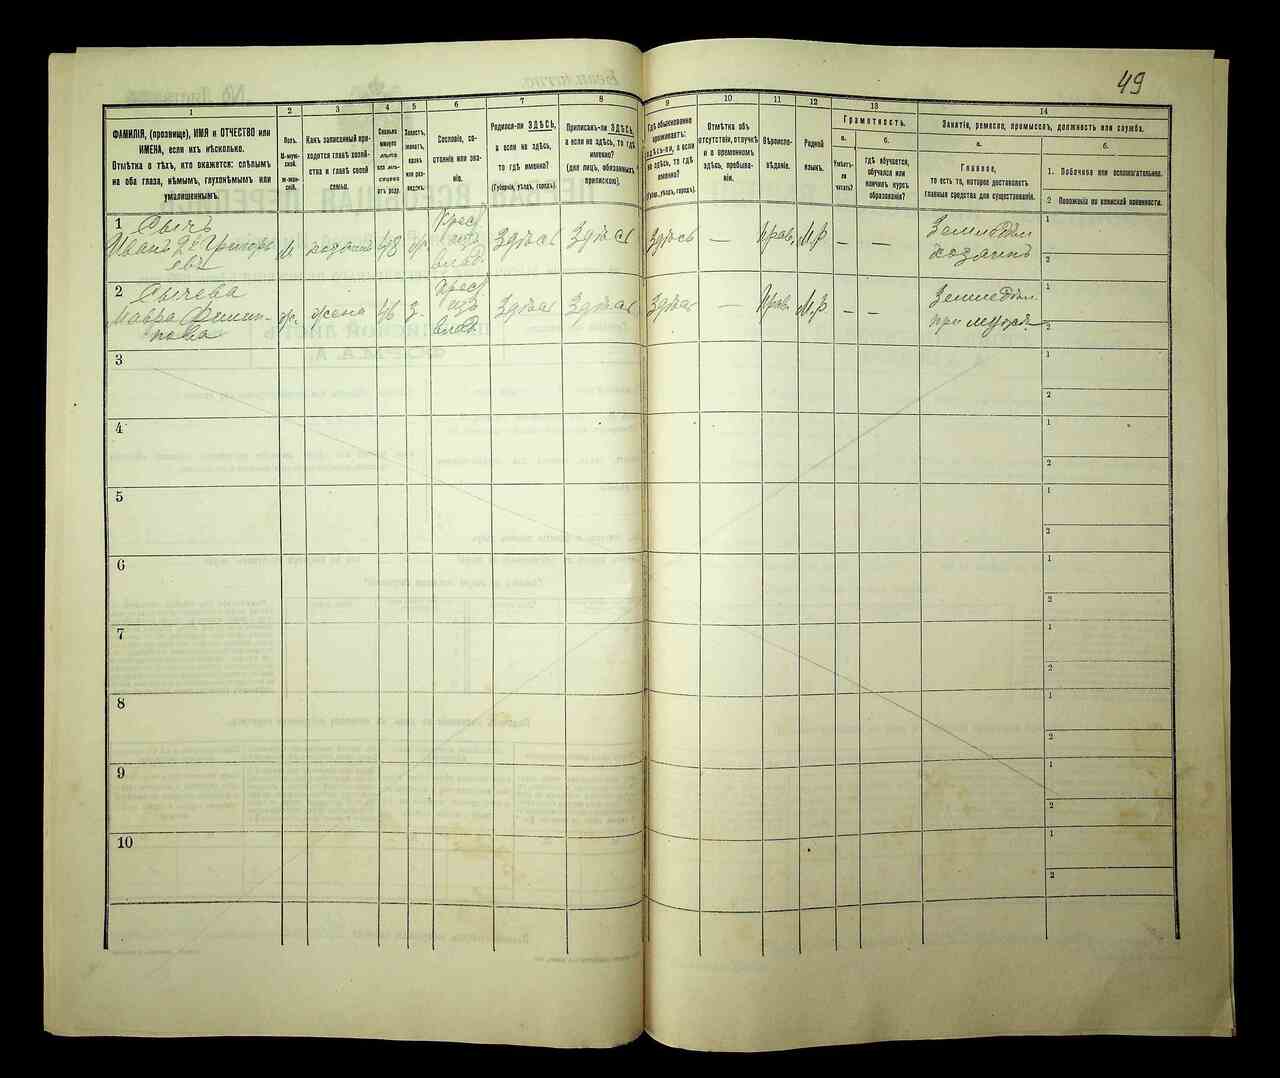 49
1
2
3
4
5
6
7
8
9
10
11
12
13
14
ФАМИЛІЯ, (прозвище), ИМЯ и ОТЧЕСТВО или
ИМЕНА, если ихъ нѣсколько.
Отмѣтка о тѣхъ, кто окажется: слѣпымъ
на оба глаза, нѣмымъ, глухонѣмымъ или
умалишеннымъ.
Полъ.
М-муж-
ской.
Ж-жен-
скій.
Какъ записанный при-
ходится главѣ хозяй-
ства и главѣ своей
семьи.
Сколько
минуло
лѣтъ
или мѣ-
сяцевъ
отъ роду.
Холостъ,
женатъ,
вдовъ
или раз-
веденъ.
Сословіе, со-
стояніе или зва-
ніе.
Родился-ли ЗДѢСЬ,
а если не здѣсь,
то гдѣ именно?
(Губернія, уѣздъ, городъ).
Приписанъ-ли ЗДѢСЬ,
а если не здѣсь, то гдѣ
именно?
(для лицъ, обязанныхъ
припискою).
Гдѣ обыкновенно
проживаетъ:
здѣсь-ли, а если
не здѣсь, то гдѣ
именно?
(Губерн., уѣздъ, городъ).
Отмѣтка объ
отсутствіи, отлучкѣ
и о временномъ
здѣсь, пребыва-
ніи.
Вѣроиспо-
вѣданіе.
Родной
языкъ.
Грамотность.
а.
б.
Умѣетъ-
ли
читать?
гдѣ обучается,
обучался или
кончилъ курсъ
образованія?
Занятіе, ремесло, промыселъ, должность или служба.
а.
б.
Главное,
то есть то, которое доставляетъ
главныя средства для существованія.
1. Побочное или вспомогательное.
2 Положеніе по воинской повинности.
1 Сычъ
Иванъ 2й Григорь
евъ
М
хозяинъ
48
ж.
Крес
изъ
влад.
Здѣсь
Здѣсь
Здѣсь
—
Прав.
М.Р
—
—
Земледѣл
хозяинъ
1
2
2 Сычева
Мавра Филип-
пова
ж.
жена
46
з.
Крес
изъ
влад.
Здѣсь
Здѣсь
Здѣсь
—
Прав.
М.Р
—
—
Земледѣл.
при мужѣ
2
3
1
2
4
1
2
5
1
2
6
1
2
7
1
2
8
1
2
9
1
2
10
1
2